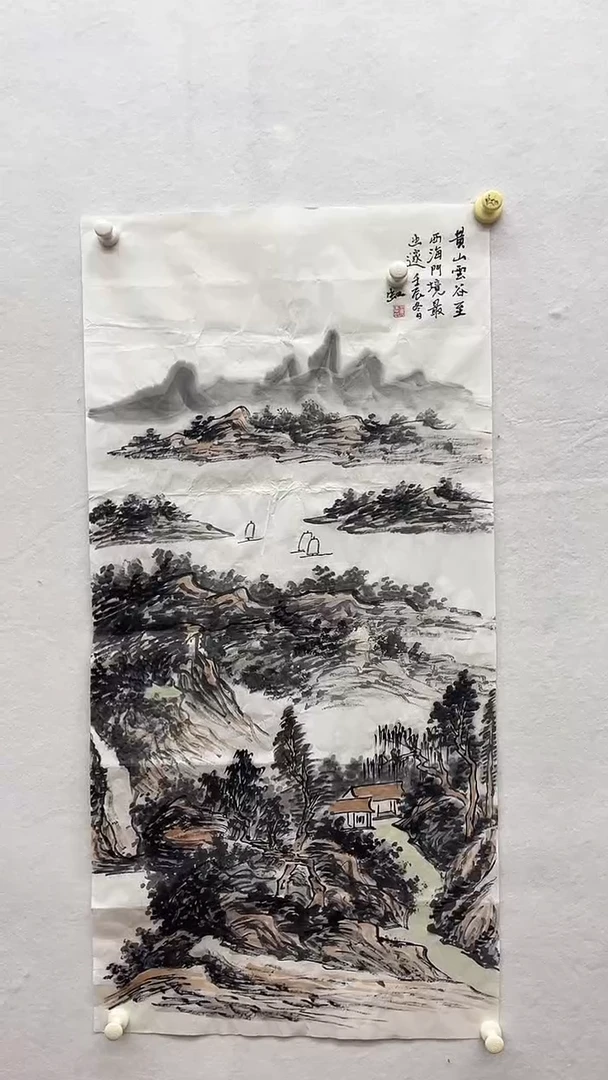 黄山雲谷至
西海門境最
幽邃 壬辰冬日
虹